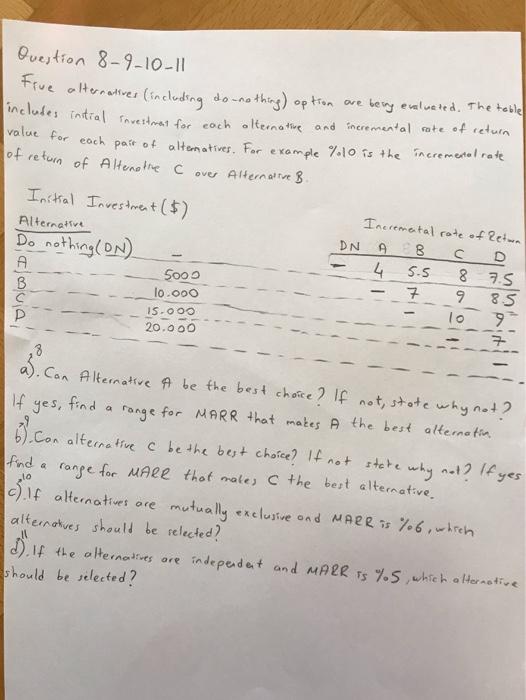 Question 8-9-10-11
Five alternatives (including do-nothing) option are beıng evalueted. The table
includes intial investmet for each alternative and incremental rate of return
value for each pair of alternatives. For example %10 is the incremental rate
of return of Altenative C over Alternative B.
Initial Investment ($)
Incremetal rate of Return
Alternative
DN A B C D
Do nothing (DN) – – 4 5.5 8 7.5
A 5000 – 7 9 8.5
B 10.000 – 10 9
C 15.000 – 7
D 20.000 –
8
a). Can Alternative A be the best choice? If not, state why not?
If yes, find a range for MARR that makes A the best alternative
9
b). Can alternative C be the best choice? If not state why not? If yes
find a range for MARR that makes C the best alternative.
10
c). If alternatives are mutually exclusive and MARR is %6, which
alternatives should be selected?
11
d). If the alternatives are independent and MARR is %5, which alternative
should be selected?